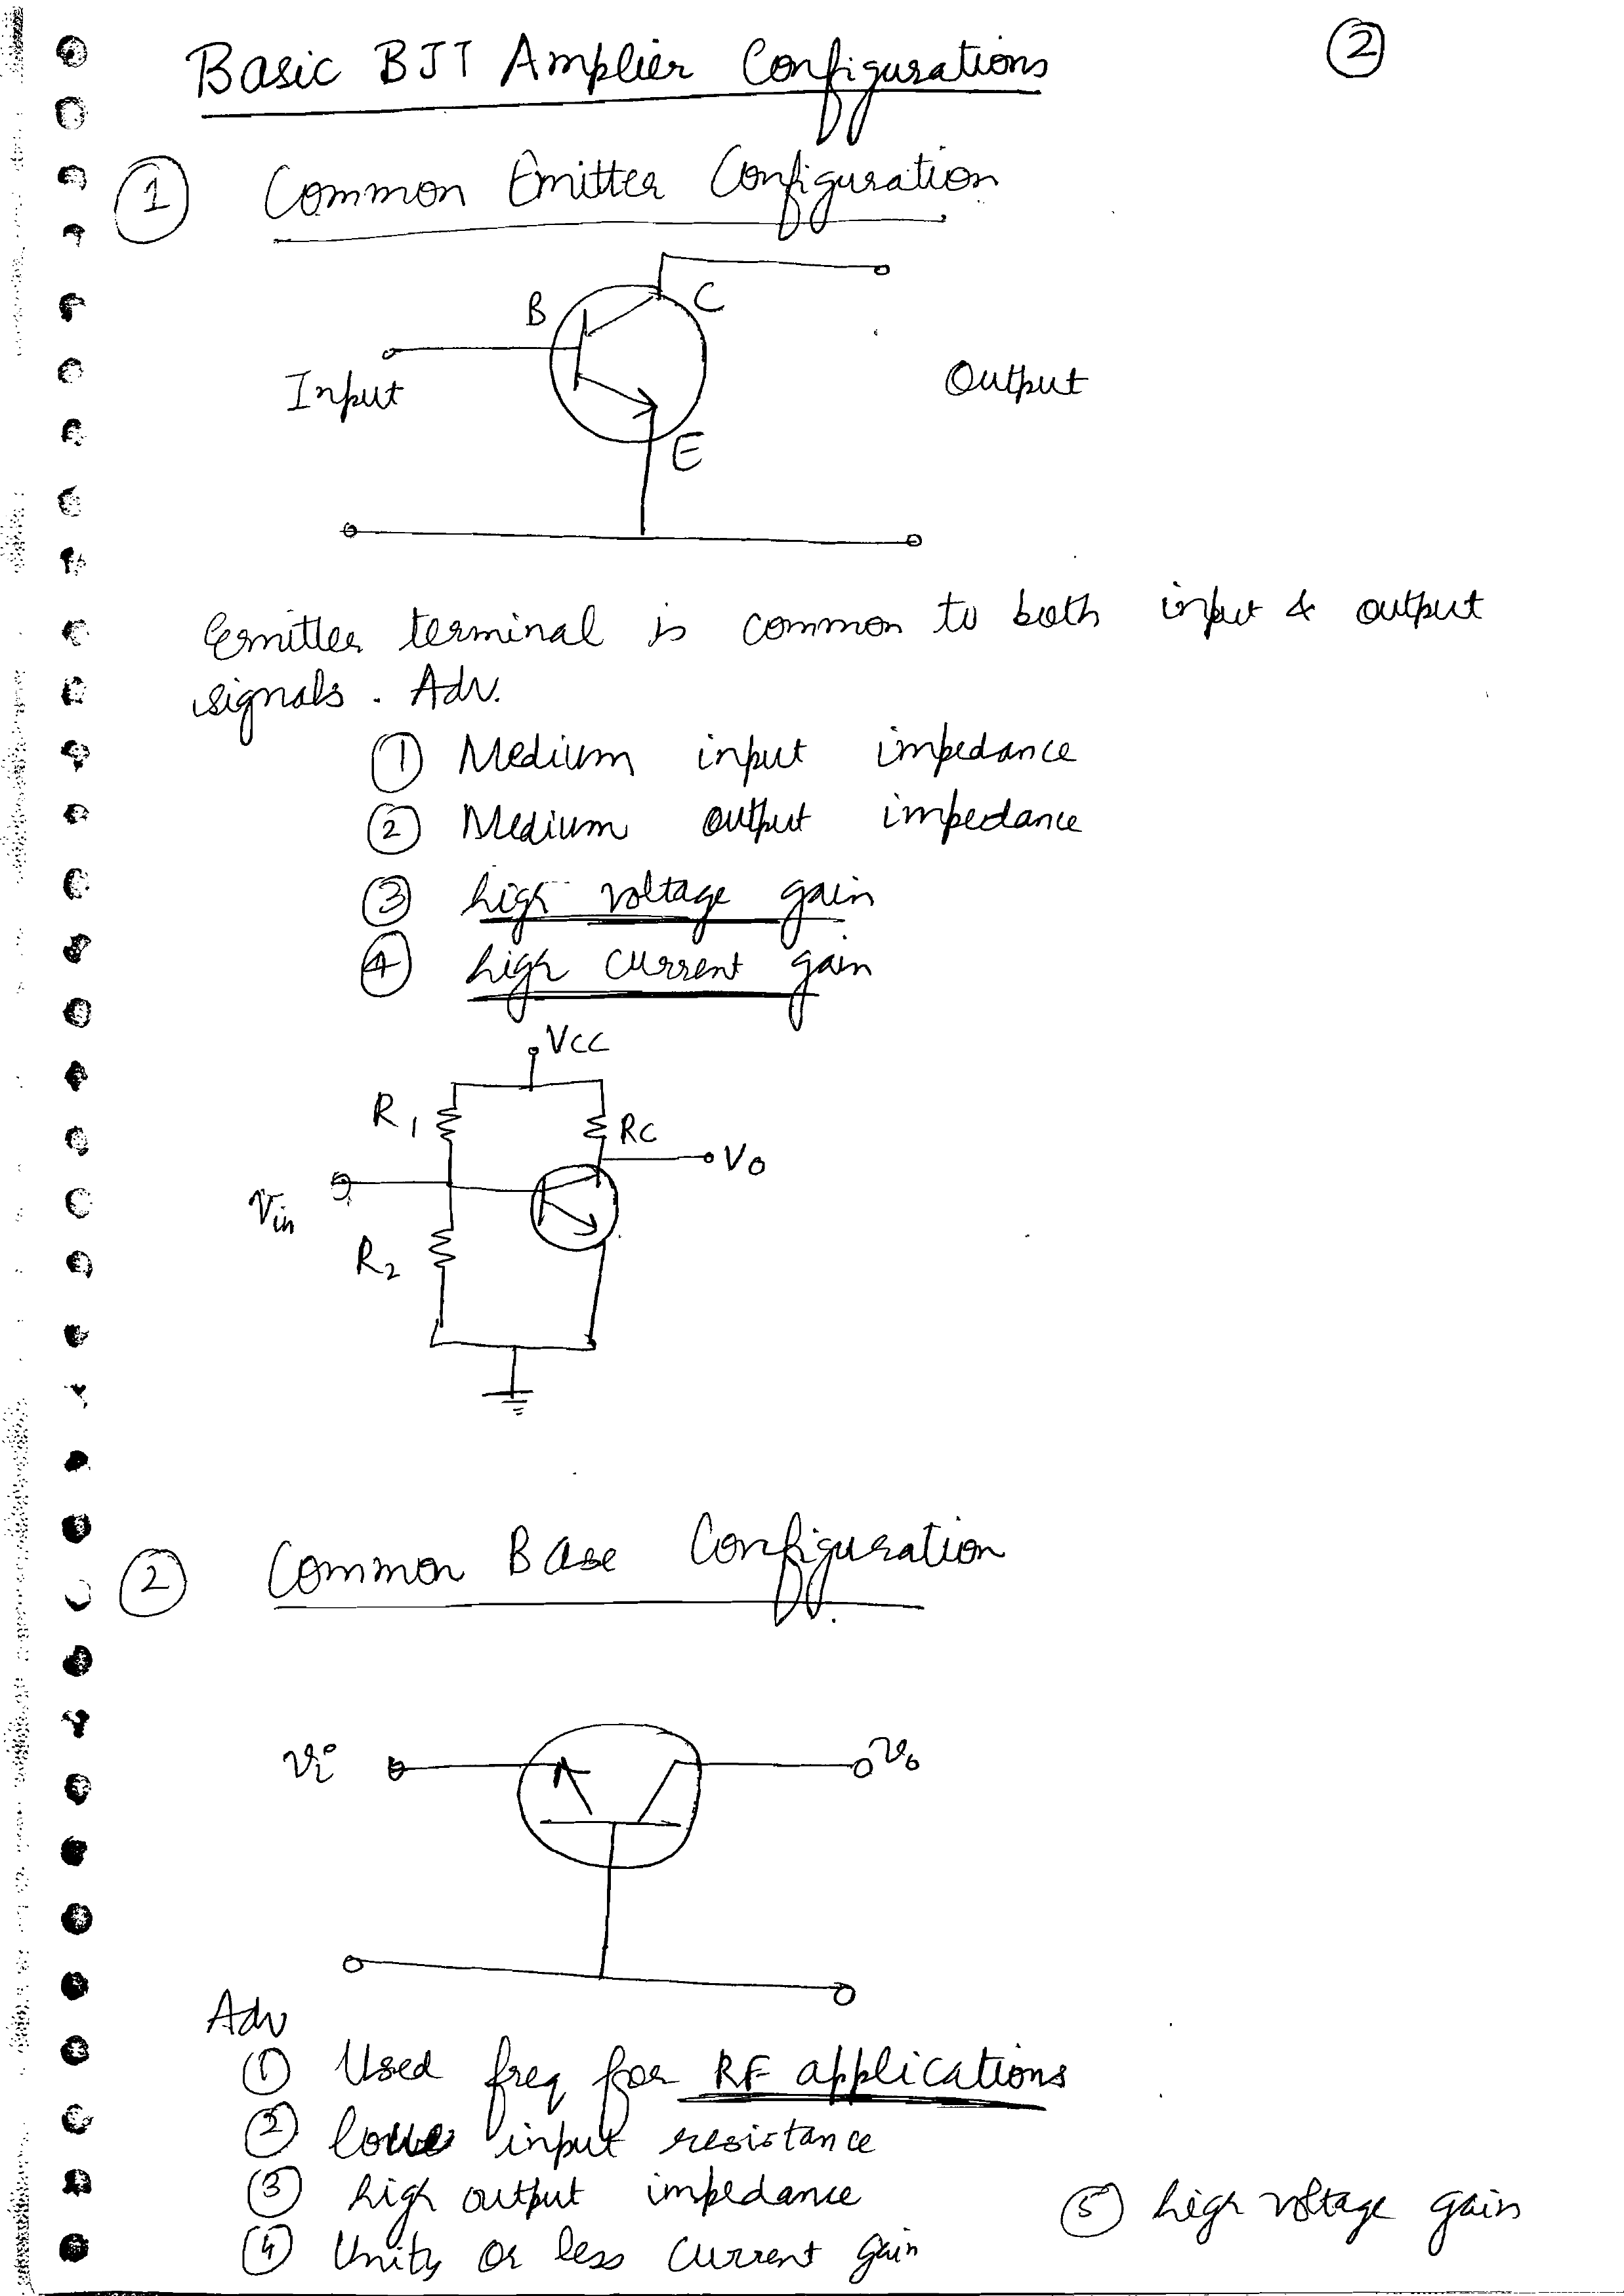 Basic BJT Amplier Configurations
②
① Common Emitter Configuration
B
C
Input
Output
E
Emitter terminal is common to both input & output
signals. Adv.
① Medium input impedance
② Medium output impedance
③ high voltage gain
④ high current gain
VCC
R1
RC
Vo
Vin
R2
② Common Base Configuration
Vi
Vo
Adv
① Used freq for RF applications
② low input resistance
③ high output impedance
⑤ high voltage gain
④ Unity or less current gain